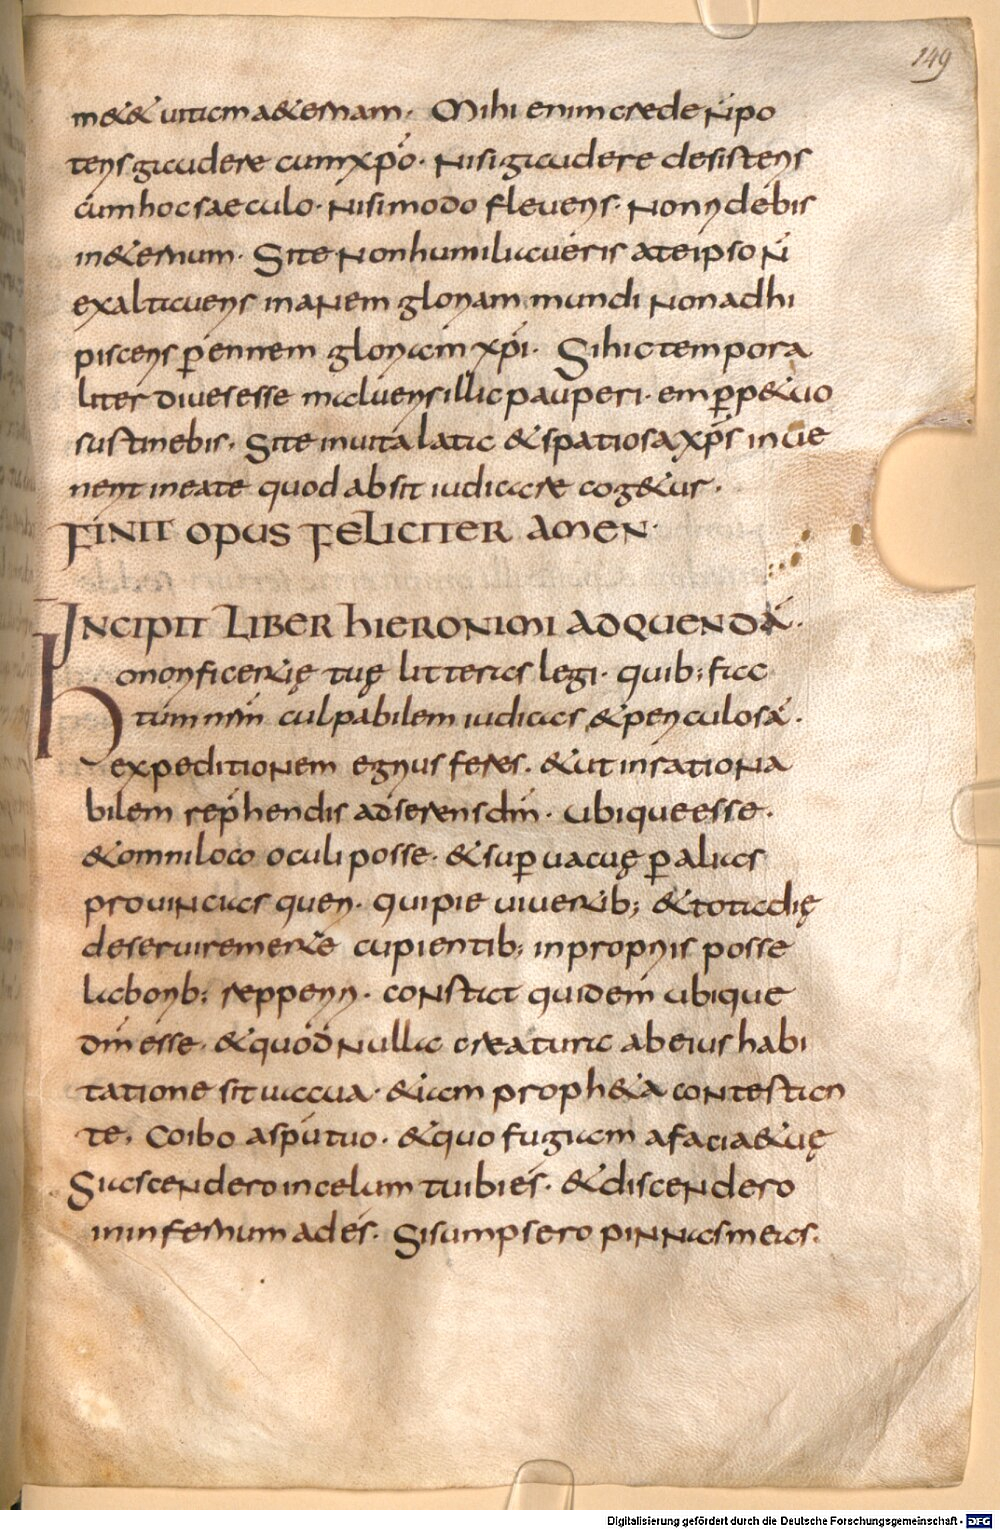 149
m&& uitam a&ernam. Mihi enim crede n̄ po
tens gaudere cum xp̄o. Nisi gaudere desistens
cum hoc saeculo. Nisi modo flevens. Non ridebis
in &ernum. Si te non humiliaveris a te ipso n̄
exaltavens inanem gloriam mundi non adhi
piscens p̄ennem gloriam xp̄i. Si hic tempora
liter dives esse malvens illic pauperi. em p̄p&uo
sustinebis. Si te invita lata & spatiosa xp̄s in ve
nent in eate quod absit iudicare cog&ur.
FINIT OPUS FELICITER AMEN.
INCIPIT LIBER HIERONIMI AD QUENDĀ.
Honorificentię tuę litteras legi. quib; fac
tum nr̄m culpabilem iudicas & periculosā.
expeditionem egrius feres. & ut inrationa
bilem rep̄hendis adserens dm̄. ubique esse.
& omni loco oculi posse. & sup̄vacuę p̄ alias
provincias queri. qui pie viventib; & tota dię
deservire mente cupientib; in propriis posse
laborib; repperiri. Constat quidem ubique
dm̄ esse. & quod nulla creatura ab eius habi
tatione sit vacua. &iam proph&a contestan
te. Co ibo a sp̄u tuo. & quo fugiam a facia & uę
Si ascendero in celum tu ibi es. & discendero
in infernum ades. Si sumpsero pinnas meas.
Digitalisierung gefördert durch die Deutsche Forschungsgemeinschaft - DFG